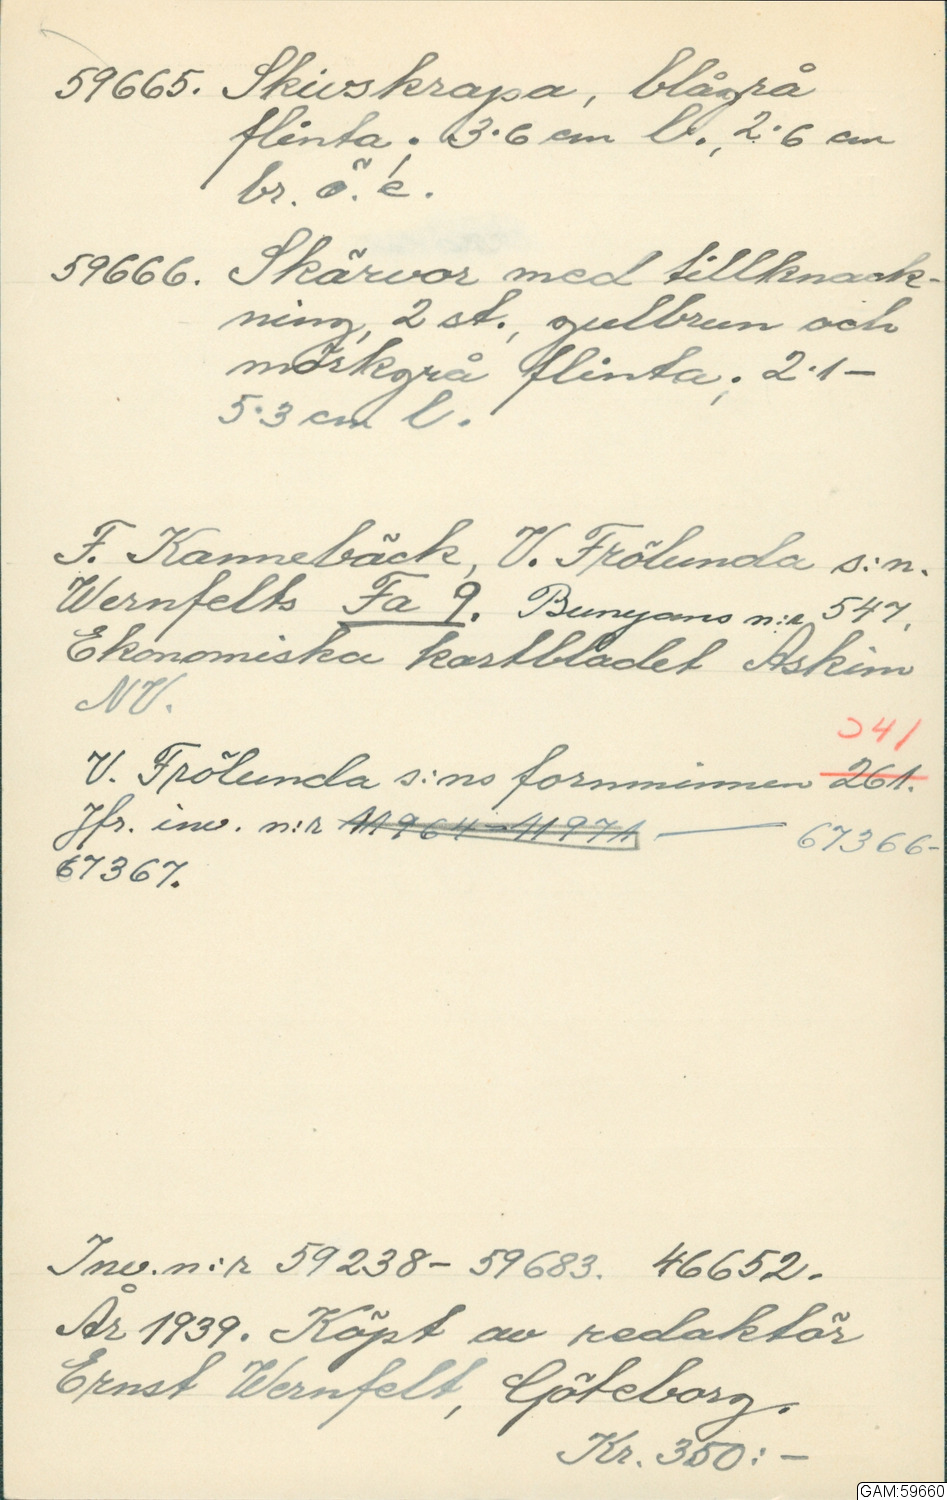 59665. Skivskrapa, blågrå
flinta; 3·6 cm l., 2·6 cm
br. ö. e.
59666. Skärvor med tillknack-
ning, 2 st., gulbrun och
mörkgrå flinta; 2·1–
5·3 cm l.
F. Kannebäck, V. Frölunda s:n.
Wernfelts Fa 9. Bunyans n:r 547.
Ekonomiska kartbladet Askim
NV.
241
V. Frölunda s:ns fornminnen 261.
Jfr. inv. n:r 41964–41971 — 67366-
67367.
Inv. n:r 59238– 59683. 46652.
År 1939. Köpt av redaktör
Ernst Wernfelt, Göteborg.
Kr. 350:–
GAM:59660